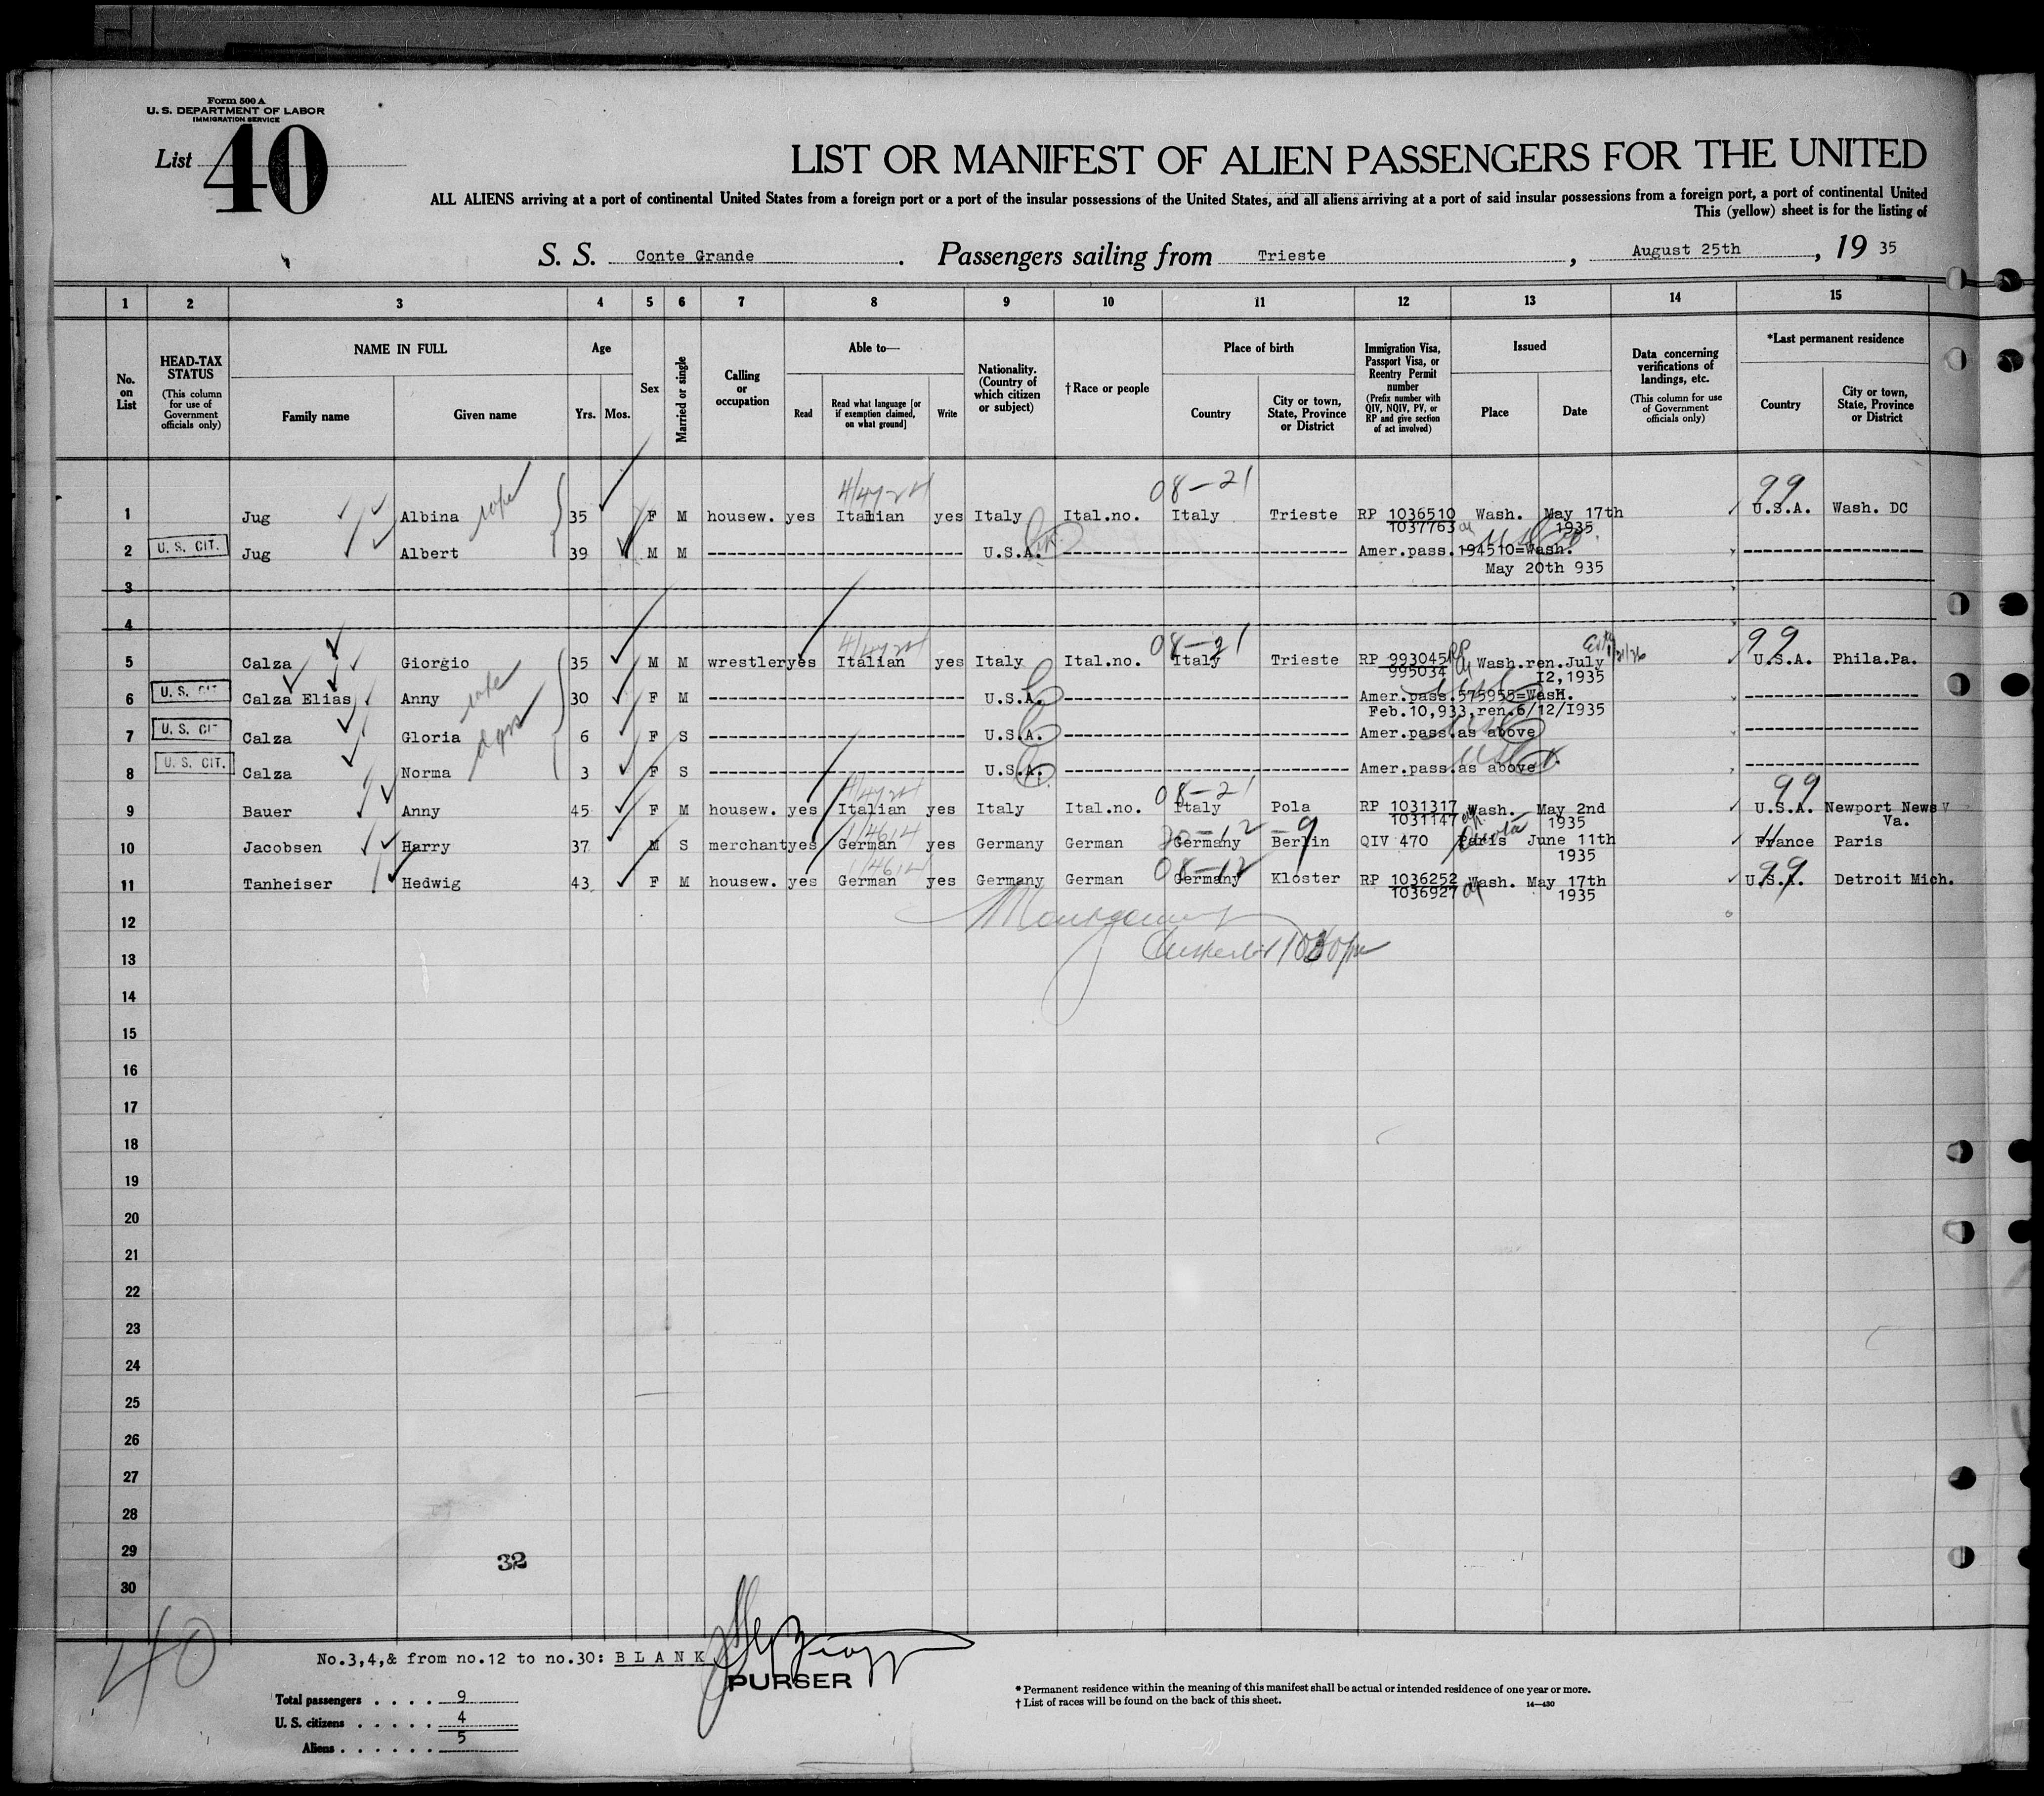 Form 500 A
U. S. DEPARTMENT OF LABOR
IMMIGRATION SERVICE
List 40
LIST OR MANIFEST OF ALIEN PASSENGERS FOR THE UNITED
ALL ALIENS arriving at a port of continental United States from a foreign port or a port of the insular possessions of the United States, and all aliens arriving at a port of said insular possessions from a foreign port, a port of continental United
This (yellow) sheet is for the listing of
S. S. Conte Grande. Passengers sailing from Trieste, August 25th, 19 35
1 2 3 4 5 6 7 8 9 10 11 12 13 14 15
No. on List
HEAD-TAX STATUS (This column for use of Government officials only)
NAME IN FULL
Family name Given name
Age
Yrs. Mos.
Sex
Married or single
Calling or occupation
Able to—
Read
Read what language [or if exemption claimed, on what ground]
Write
Nationality. (Country of which citizen or subject)
†Race or people
Place of birth
Country
City or town, State, Province or District
Immigration Visa, Passport Visa, or Reentry Permit number (Prefix number with QIV, NQIV, PV, or RP and give section of act involved)
Issued
Place Date
Data concerning verifications of landings, etc. (This column for use of Government officials only)
*Last permanent residence
Country
City or town, State, Province or District
08-21 99
1 Jug Albina 35 F M housew. yes Italian yes Italy Ital.no. Italy Trieste RP 1036510 Wash. May 17th U.S.A. Wash. DC
1037763 1935
2 U. S. CIT. Jug Albert 39 M M U.S.A. Amer.pass.194510=Wash.
May 20th 935
3
4
08-21 99
5 Calza Giorgio 35 M M wrestler yes Italian yes Italy Ital.no. Italy Trieste RP 993045 Wash.ren.July U.S.A. Phila.Pa.
995034 I2,1935
6 U. S. CIT Calza Elias Anny 30 F M U.S.A. Amer.pass.575955=WasH.
Feb.10,933,ren.6/12/I935
7 U. S. CIT Calza Gloria 6 F S U.S.A. Amer.pass.as above
8 U. S. CIT. Calza Norma 3 F S U.S.A. Amer.pass.as above
08-21 99
9 Bauer Anny 45 F M housew. yes Italian yes Italy Ital.no. Italy Pola RP 1031317 Wash. May 2nd U.S.A. Newport News V
1031147 1935 Va.
10 Jacobsen Harry 37 M S merchant yes German yes Germany German Germany Berlin QIV 470 Paris June 11th France Paris
1935
08-12 99
11 Tanheiser Hedwig 43 F M housew. yes German yes Germany German Germany Kloster RP 1036252 Wash. May 17th U.S.A. Detroit Mich.
1036927 1935
12
13
14
15
16
17
18
19
20
21
22
23
24
25
26
27
28
29
32
30
40
No.3,4,& from no.12 to no.30: B L A N K
PURSER
Total passengers . . . . 9
U. S. citizens . . . . . 4
Aliens . . . . . . 5
* Permanent residence within the meaning of this manifest shall be actual or intended residence of one year or more.
† List of races will be found on the back of this sheet.
14—430